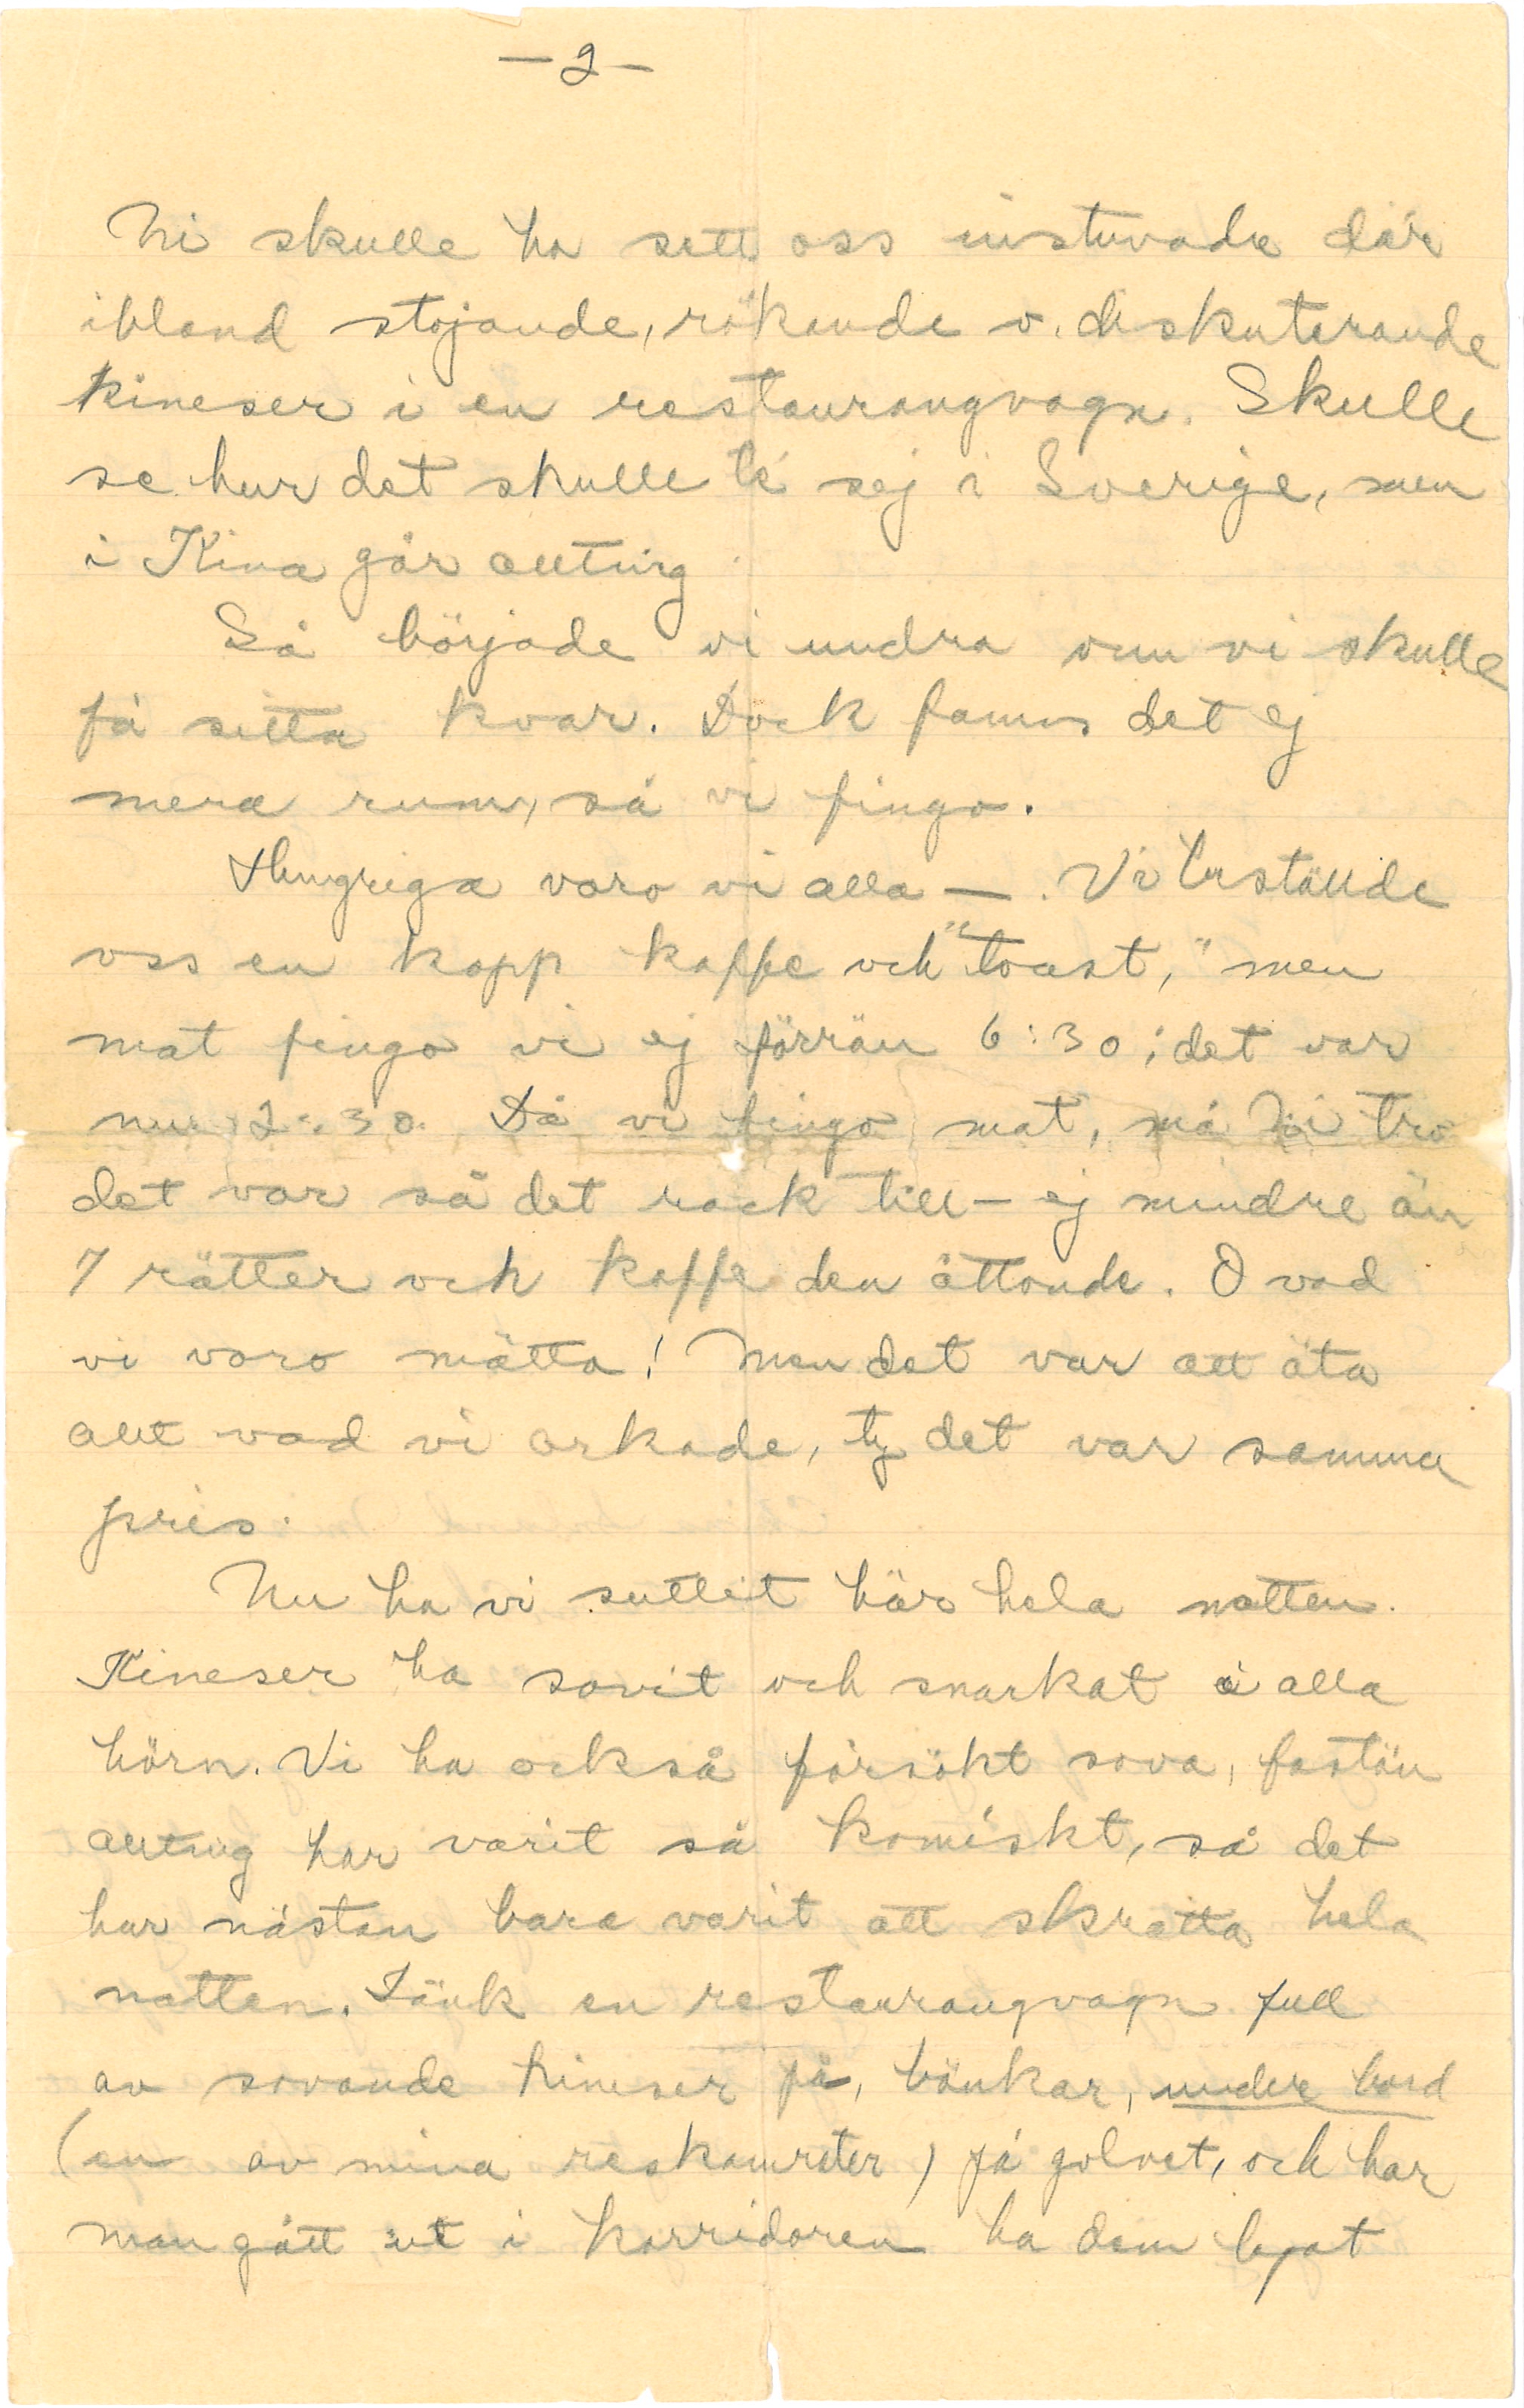 – 2 –
Ni skulle ha sett oss instuvade där
ibland stojande, rökande o. diskuterande
kineser i en restaurangvagn. Skulle
se hur det skulle te sej i Sverige, men
i Kina går allting.
Så började vi undra om vi skulle
få sitta kvar. Dock fanns det ej
mera rum, så vi fingo.
Hungriga voro vi alla —. Vi beställde
oss en kopp kaffe och "toast," men
mat fingo vi ej förrän 6:30; det var
nu 2:30. Då vi fingo mat, må Ni tro
det var så det rack till – ej mindre än
7 rätter och kaffe den åttonde. O vad
vi voro mätta! Men det var att äta
allt vad vi orkade, ty det var samma
pris.
Nu ha vi suttit här hela natten.
Kineser ha sovit och snarkat i alla
hörn. Vi ha också försökt sova, fastän
allting har varit så komiskt, så det
har nästan bara varit att skratta hela
natten. Tänk en restaurangvagn full
av sovande kineser på, bänkar, under bord
(en av mina reskamrater) på golvet, och har
man gått ut i korridoren ha dem legat